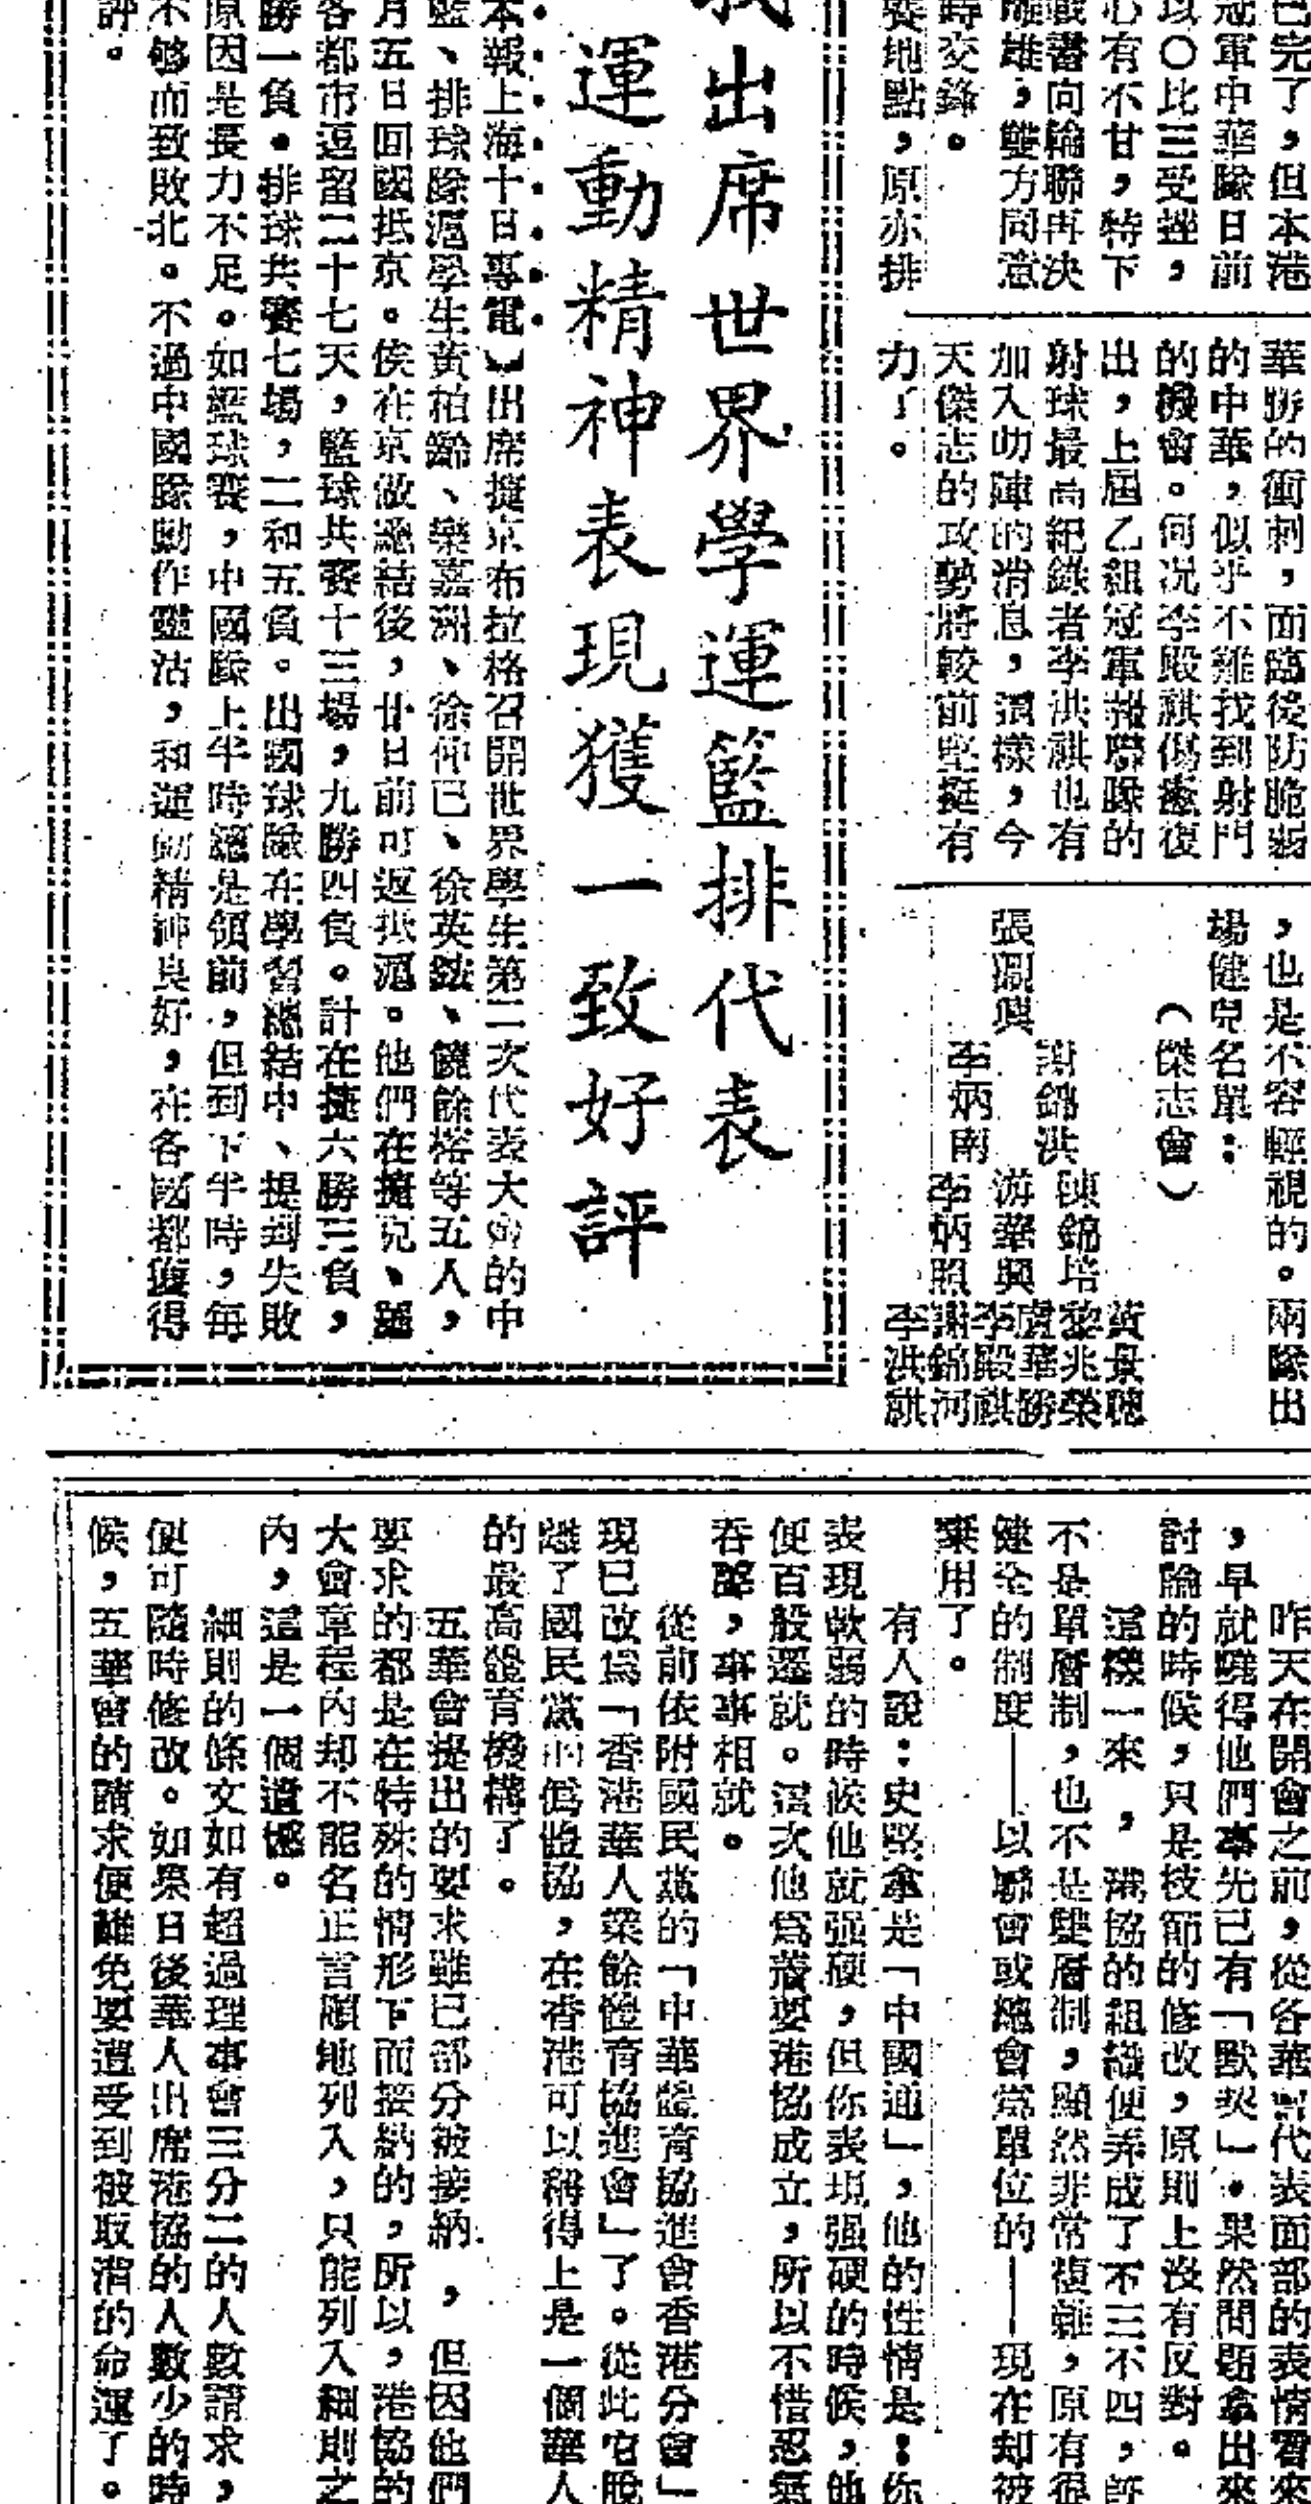 已完了，但本港
冠軍中華隊日前
以〇比三受挫，
心有不甘，特下
戰書向輪聯再決
雌雄，雙方同意
時交鋒。
賽地點，原亦排
華勝的衝刺，面臨後防脆弱
的中華，似乎不難找到射門
的機會。何况李殿麒傷癒復
出，上屆乙組冠軍報聯隊的
射球最高紀錄者李洪祺也有
加入助陣的消息，這樣，今
天傑志的攻勢將較前堅挺有
力了。
，也是不容輕視的。兩隊出
場健兒名單：
（傑志會）
黃景聰
陳錦培 黎兆榮
謝錦洪 盧華勝
張國興 游華興 李殿麒
李炳南 李炳照 謝錦河
李洪祺
我出席世界學運籃排代表
運動精神表現獲一致好評
本報上海十日專電】出席捷京布拉格召開世界學生第二次代表大會的中
籃、排球隊滬學生黃柏齡、樂嘉洲、徐仲巳、徐英鈸、饒餘塔等五人，
月五日回國抵京。俟在京做總結後，廿日前可返抵滬。他們在捷克、羅
各都市逗留二十七天，籃球共賽十三場，九勝四負。計在捷六勝三負，
勝一負。排球共賽七場，二和五負。出國球隊在學習總結中、提到失敗
原因是長力不足。如籃球賽，中國隊上半時總是領前，但到下半時，每
不够而致敗北。不過中國隊動作靈活，和運動精神良好，在各國都獲得
評。
昨天在開會之前，從各華會代表面部的表情看來
，早就曉得他們事先已有「默契」。果然問題拿出來
討論的時候，只是技節的修改，原則上沒有反對。
這樣一來，港協的組織便弄成了不三不四，旣
不是單層制，也不是雙層制，顯然非常複雜，原有很
健全的制度——以聯會或總會為單位的——現在却被
棄用了。
有人說：史堅拿是「中國通」，他的性情是：你
表現軟弱的時候他就强硬，但你表現强硬的時候，他
便百般遷就。這次他爲着要港協成立，所以不惜忍氣
吞聲，事事相就。
從前依附國民黨的「中華體育協進會香港分會」
現已改爲「香港華人業餘體育協進會」了。從此它脫
離了國民黨的僞體協，在香港可以稱得上是一個華人
的最高體育機構了。
五華會提出的要求雖已部分被接納，但因他們
要求的都是在特殊的情形下而接納的，所以，港協的
大會章程內却不能名正言順地列入，只能列入細則之
內，這是一個遺憾。
細則的條文如有超過理事會三分二的人數請求，
便可隨時修改。如果日後華人出席港協的人數少的時
候，五華會的請求便難免要遭受到被取消的命運了。